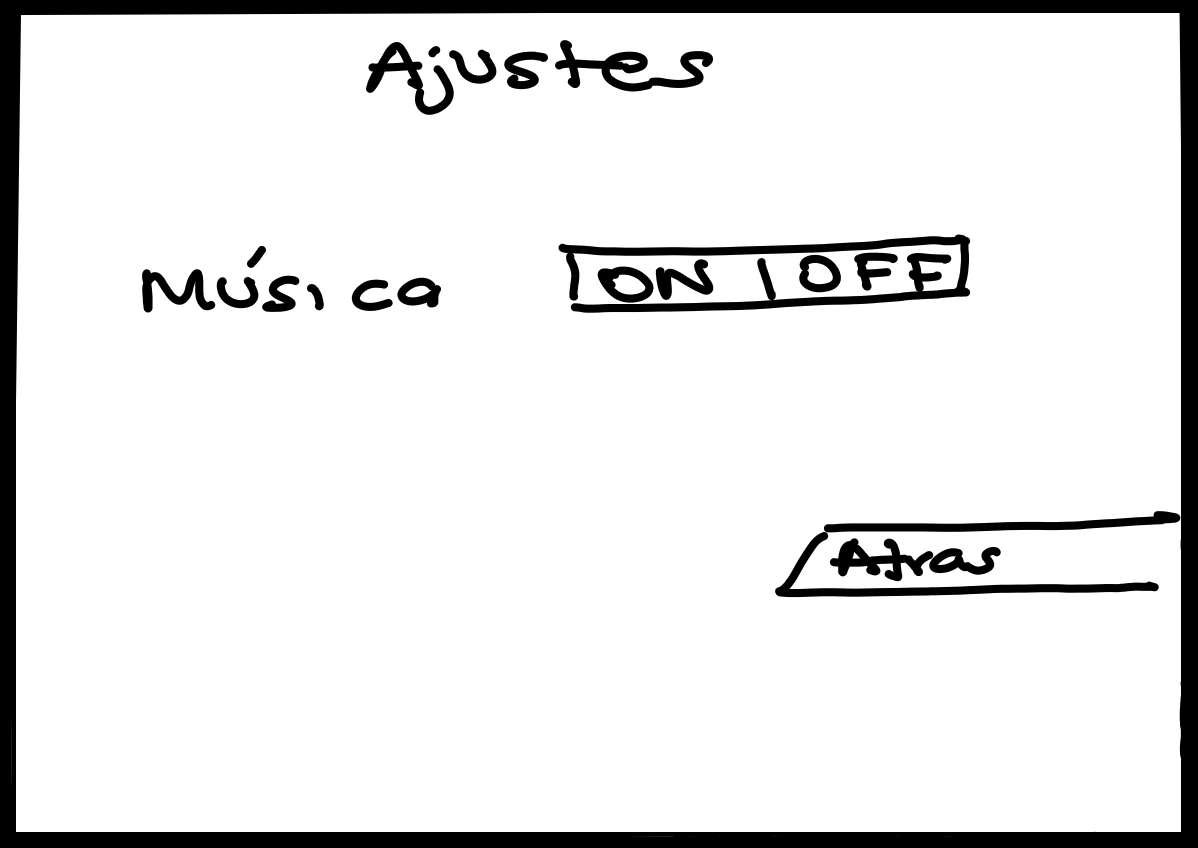 Ajustes
Música ON | OFF
Atras